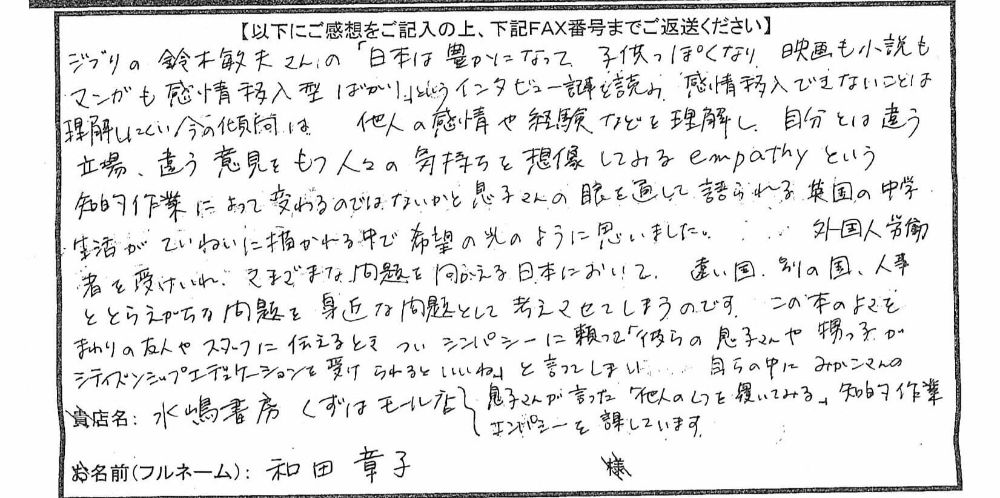 【以下にご感想をご記入の上、下記FAX番号までご返送ください】
ジブリの鈴木敏夫さんの「日本は豊かになって 子供っぽくなり 映画も小説も
マンガも感情移入型ばかり」というインタビュー記事を読み、感情移入できないことは
理解しにくい今の傾向は 他人の感情や経験などを理解し、自分とは違う
立場、違う意見をもつ人々の気持ちを想像してみるempathyという
知的作業によって変わるのではないかと息子さんの眼を通して語られる英国の中学
生活がていねいに描かれる中で希望の光のように思いました。 外国人労働
者を受けいれ、さまざまな問題を向かえる日本において、遠い国、別の国、人事
ととらえがちな問題を身近な問題として考えさせてしまうのです この本のよさを
まわりの友人やスタッフに伝えるとき ついシンパシーに頼って「彼らの息子さんや甥っ子が
シティズンシップエデュケーションを受けられるといいね」と言ってしまい 自らの中にみかこさんの
貴店名: 水嶋書房 くずはモール店 息子さんが言った「他人のくつを履いてみる」知的作業
エンパシーを課しています
お名前(フルネーム): 和田章子 様